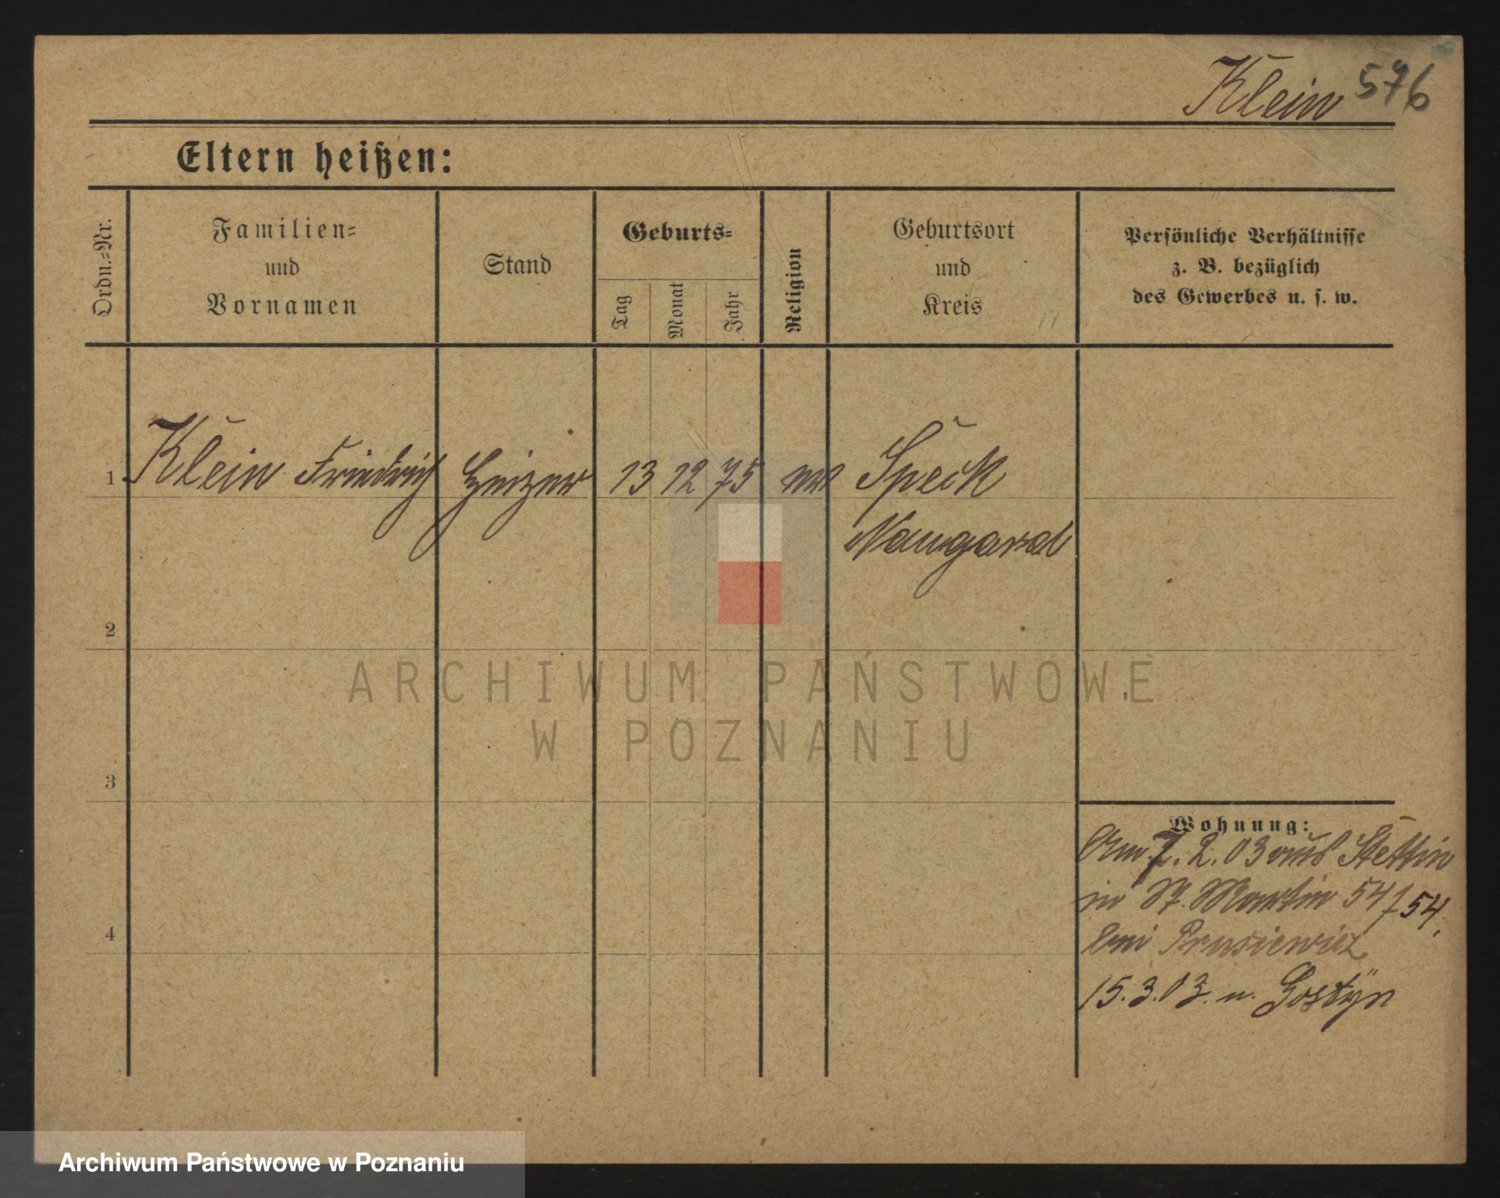 Klein 576
Eltern heißen:
Ordn.-Nr.
Familien-
und
Vornamen
Stand
Geburts-
Tag
Monat
Jahr
Religion
Geburtsort
und
Kreis
Persönliche Verhältnisse
z. B. bezüglich
des Gewerbes u. s. w.
1 Klein Friedrich Heizer 13 12 75 ev Speck
Naugard
2
3
4
Wohnung:
Am 7. 2. 03 aus Stettin
in St. Martin 54 / 54.
bei Prusiewicz
15.3.03. n. Gostÿn
ARCHIWUM PAŃSTWOWE
W POZNANIU
Archiwum Państwowe w Poznaniu